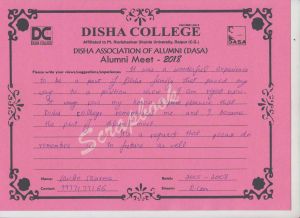 DISHA COLLEGE
Affiliated to Pt. Ravishankar Shukla University, Raipur (C.G.)
DISHA ASSOCIATION OF ALUMNI (DASA)
Alumni Meet - 2018
DC
DISHA COLLEGE
DASA
Please write your views/suggestions/experiences It was a wonderful experience
to be a part of Disha family that paved my
way to a position where I am right now.
It gives me honor and pleasure that
Disha college remember me and I became
the part of alumni meet
a request that please do
remember in future as well
Scrapbook
Name : Sharma
Contact :
Batch : 2005-2008
Stream : B.Com